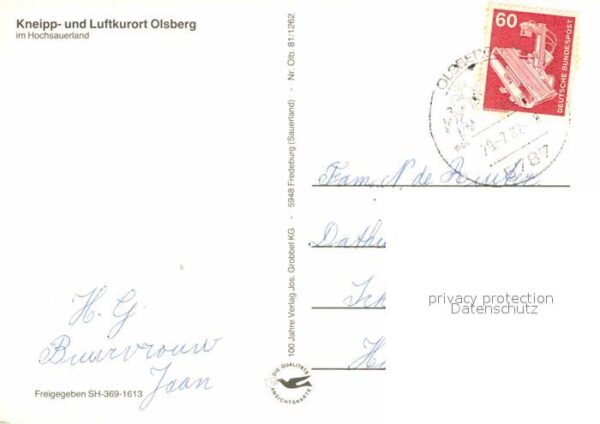 Kneipp- und Luftkurort Olsberg
im Hochsauerland
H. G.
Buurvrouw
Jaan
Freigegeben SH-369-1613
100 Jahre Verlag Jos. Grobbel KG - 5948 Fredeburg (Sauerland) - Nr. Olb. 81:1262
DIE QUALITÄTS
ANSICHTSKARTE
60
DEUTSCHE BUNDESPOST
5787
Fam. N. de Ruiter
privacy protection
Datenschutz